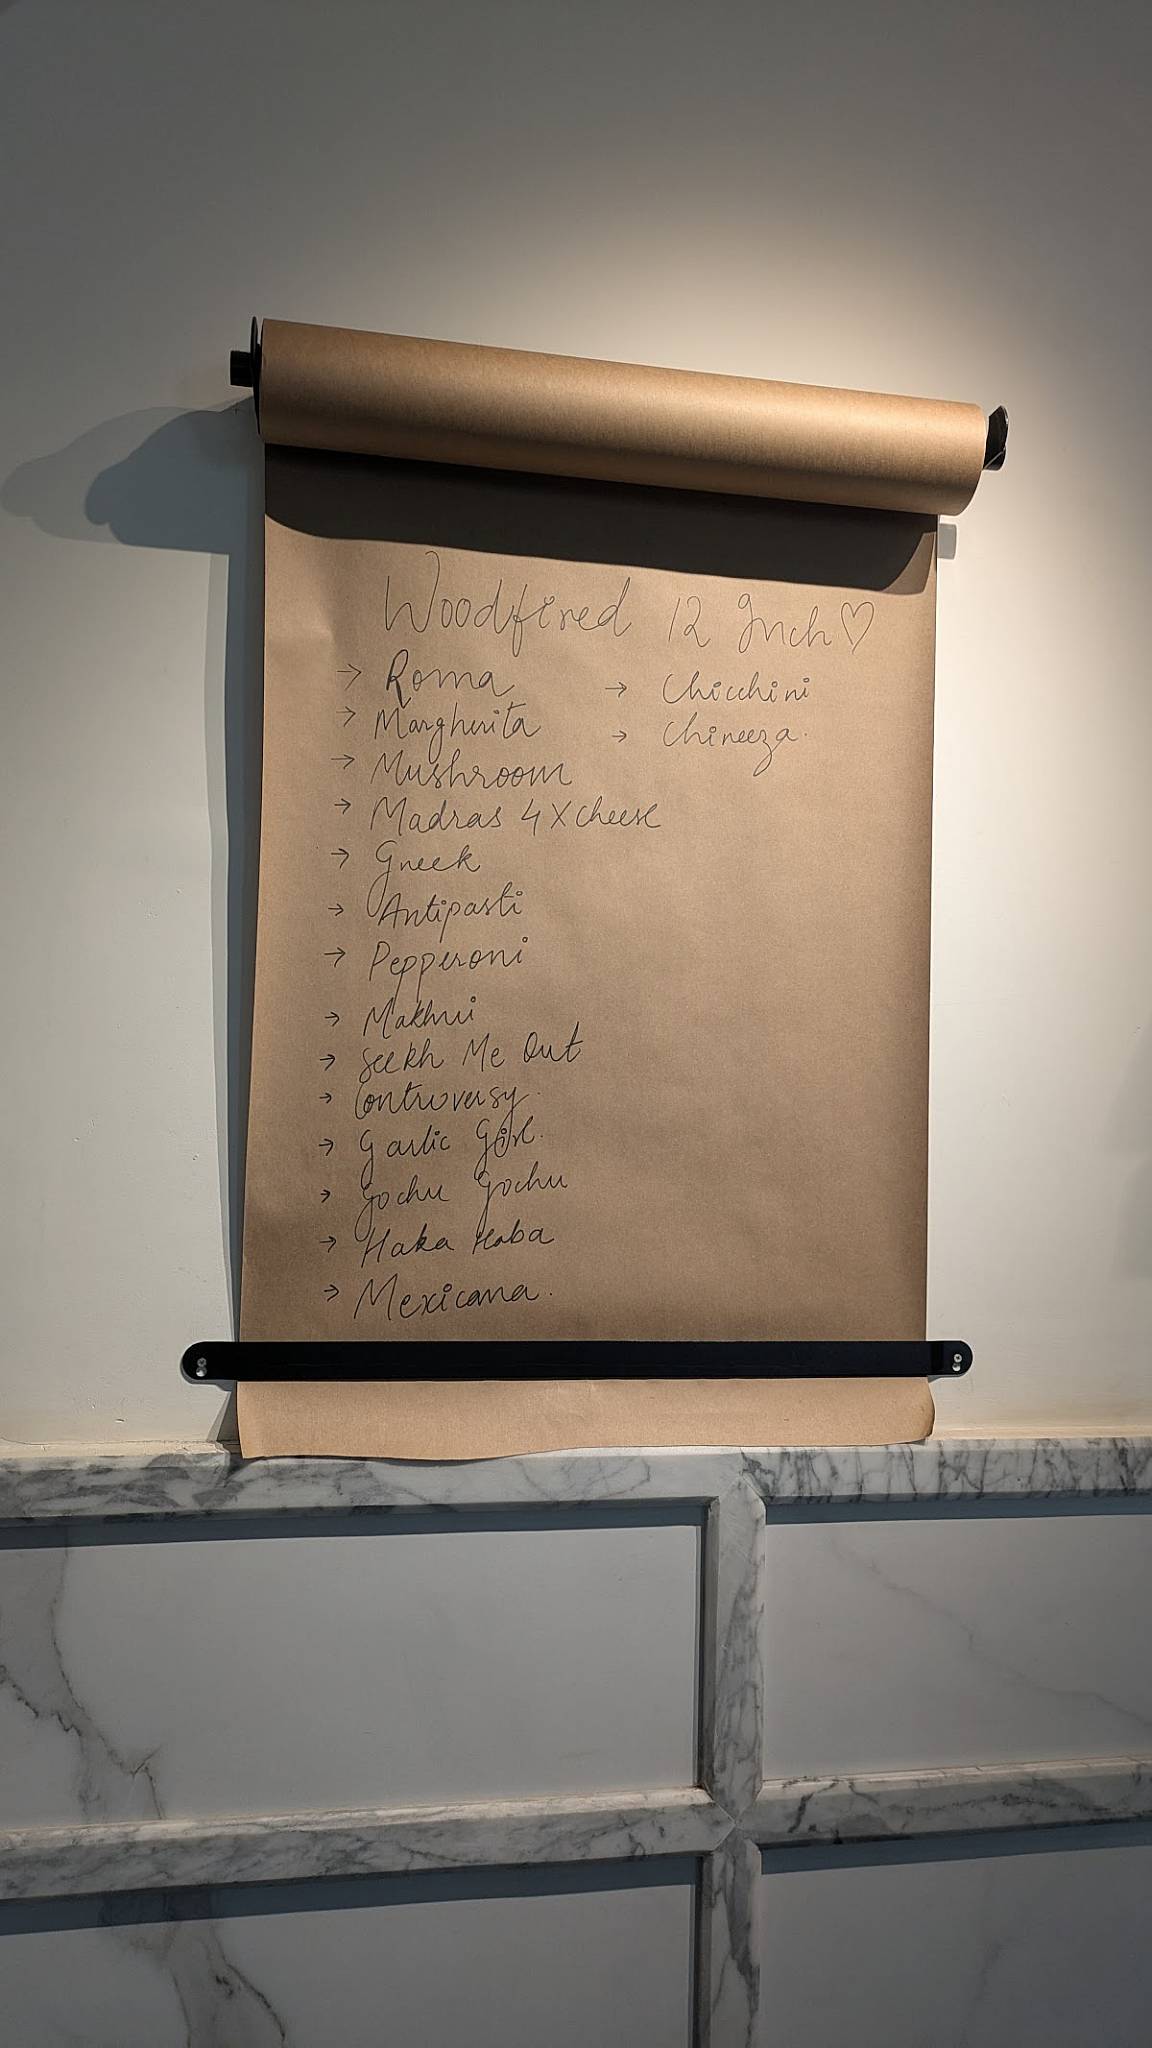 Woodfired 12 Inch ♡
→ Roma
→ Margherita
→ Mushroom
→ Madras 4 X cheese
→ Greek
→ Antipasti
→ Pepperoni
→ Makhni
→ Seekh Me Out
→ Controversy.
→ Garlic Girl.
→ Gochu Gochu
→ Haka Haba
→ Mexicana.
→ Chicchini
→ Chineeza.